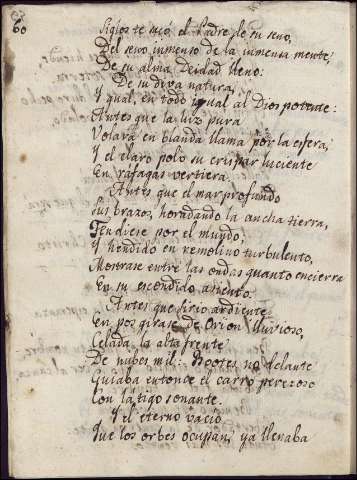 60
Siglos te crió el Padre de su seno,
Del seno inmenso de la inmensa mente,
De su alma Deidad lleno:
De su diva natura,
Y qual, en todo igual al Dios potente:
Antes que la luz pura
Volara en blanda llama por la esfera,
Y el claro polo su crispar luciente
En ráfagas vertiera.
Antes que el mar profundo
Sus brazos, horadando la ancha tierra,
Tendiese por el mundo,
Y hendido en remolino turbulento,
Mostrase entre las ondas quanto encierra
En su escondido asiento.
Antes que Sirio ardiente
En pos girase de Orion lluvioso,
Celada la alta frente
De nubes mil: Bootes no delante
Guiaba entonce el carro perezoso
Con látigo sonante.
Y el eterno vacío
Que los orbes ocupan, ya llenaba